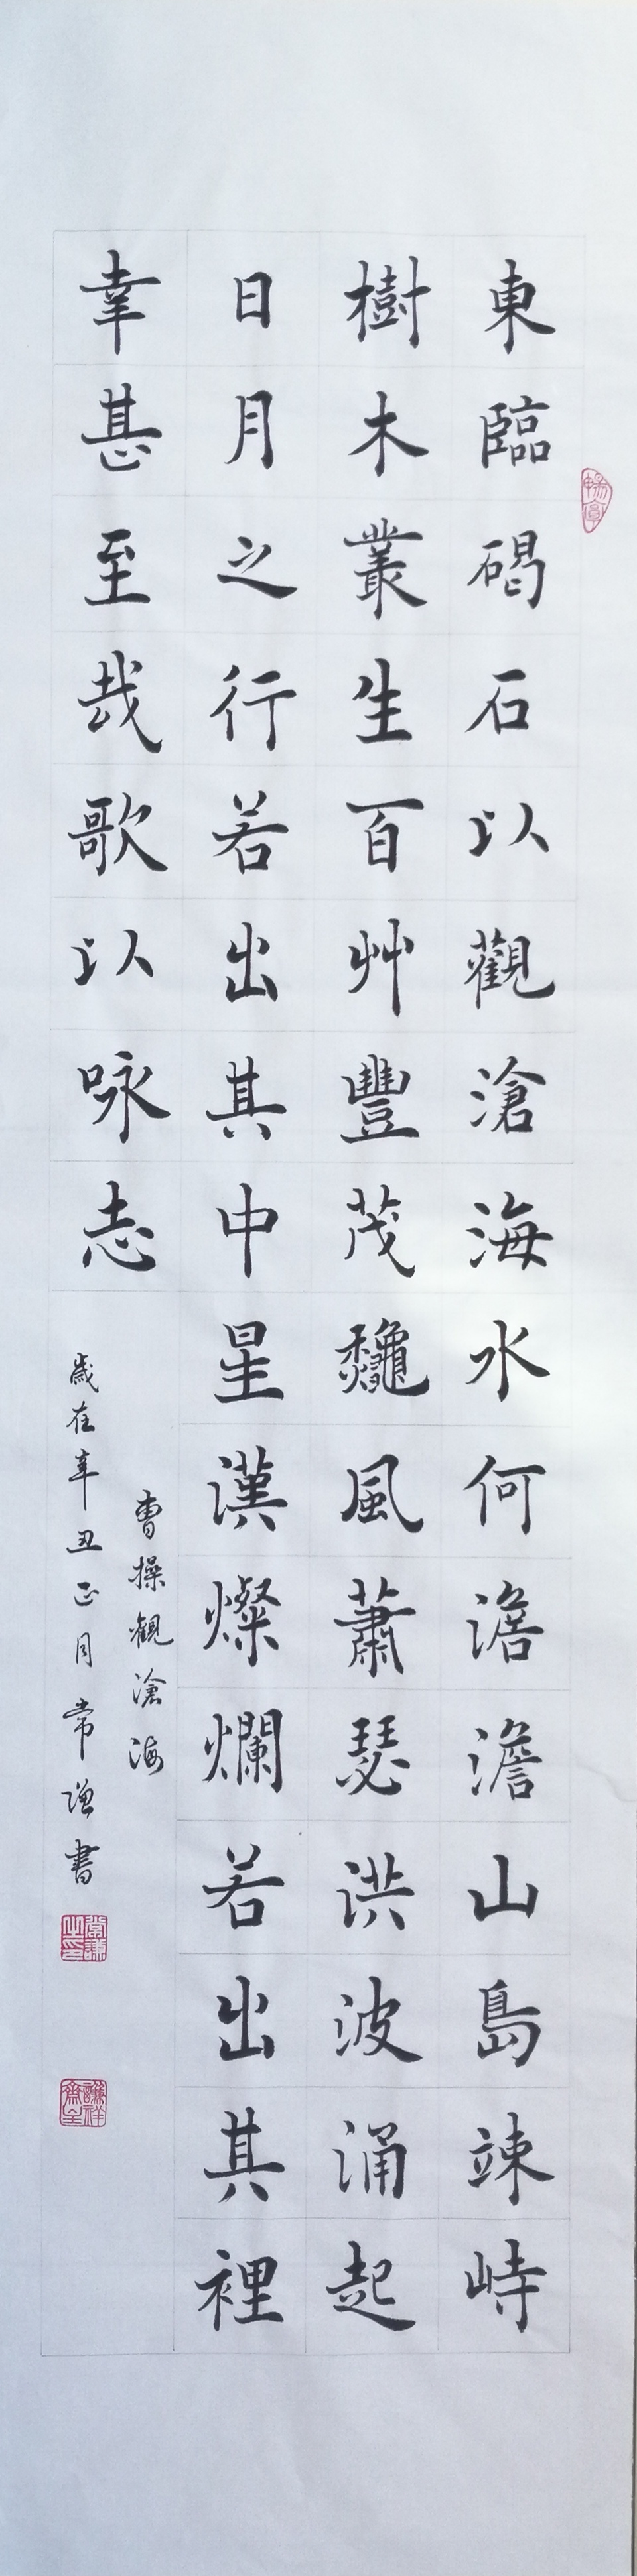 東臨碣石以觀滄海水何澹澹山島竦峙
樹木叢生百艸豐茂龝風蕭瑟洪波涌起
日月之行若出其中星漢燦爛若出其裡
幸甚至哉歌以咏志
曹操觀滄海
歲在辛丑正月常謙書